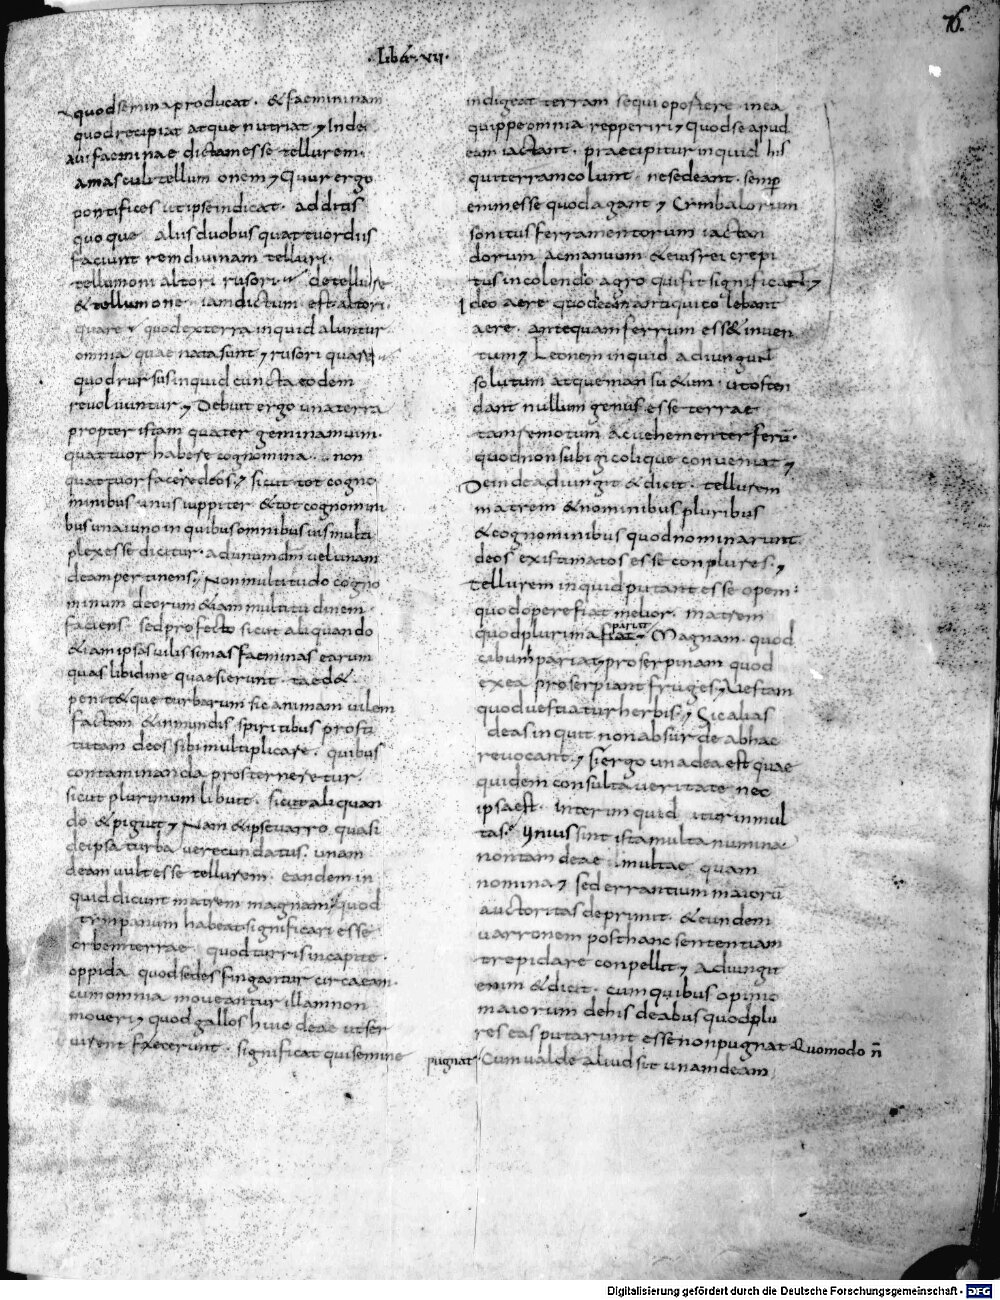 76.
· Lib͞er · vii ·
quod semina producat · & faemininam
quod recipiat atque nutriat · Inde
a ui faeminae dictam esse tellurem ·
a masculi tellumonem · Cur ergo
pontifices ut ipse indicat · additis
quoque aliis duobus quattuor diis
faciunt rem diuinam telluri ·
tellumoni altori rusori · de tellure
& tellumone · iam dictum est altori
quare · quod ex terra inquid aluntur
omnia quae nata sunt · rusori quare
quod rursus inquid cuncta eodem
reuoluuntur · Debuit ergo una terra
propter istam quater geminam uim ·
quattuor habere cognomina · non
quattuor facere deos · sicut tot cogno
minibus unus iuppiter & tot cognomini
bus una iuno in quibus omnibus uis multi
plex esse dicitur · ad unum dm̄ uel unam
deam pertinens · Non multitudo cogno
minum deorum &iam multitudinem ·
faciens · sed profecto sicut aliquando
&iam ipsas uilissimas faeminas earum
quas libidine quaesierunt · taed& ·
penit&que turbarum sic animam uilem
factam & inmundis spiritibus prosti
tutam deos sibi multiplicare · quibus
contaminanda prosterneretur ·
sicut plurimum libuit · sicut aliquan
do & piguit · Nam & ipse uarro quasi
de ipsa turba uerecundatus · unam
deam uult esse tellurem · eandem in
quid dicunt matrem magnam · quod
tympanum habeat significari esse
orbem terrae · quod turris in capite ·
oppida quod sedes fingantur circa eam ·
cum omnia moueantur illam non
moueri · quod gallos huic deae ut ser
uirent faecerunt · significat qui semine
indigeat terram sequi oportere in ea
quippe omnia repperiri · Quod se apud
eam iactant · praecipitur inquid his
qui terram colunt · ne sedeant · semp̄
enim esse quod agant · Cymbalorum
sonitus ferramentorum iactan
dorum ac manuum & eius rei crepi
tus in colendo agro qui fit significat
Ideo aere quod eam antiqui colebant
aere · antequam ferrum ess& inuen
tum · Leonem inquid adiungunt
solutum atque mansu&um · ut osten
dant nullum genus esse terrae
tam remotum ac uehementer ferū ·
quod non subigi colique conueniat ·
Deinde adiungit & dicit · tellurem
matrem & nominibus pluribus
& cognominibus quod nominarunt
deos existimatos esse conplures ·
Tellurem inquid putant esse opem ·
quod opere fiat melior · matrem
quod plurima fiat · Magnam · quod
pariat
cibum pariat · proserpinam quod
ex ea proserpiant fruges · Uestam
quod uestiatur herbis · Sic alias
deas inquit non absurde ab hac
reuocant · Si ergo una dea est quae
quidem consulta ueritate nec
ipsa est · Interim quid itur in mul
tas · Unius sint ista multa numina
non tam deae multae quam
nomina · Sed errantium maiorū
auctoritas deprimit · & eundem
uarronem post hanc sententiam
trepidare conpellit · Adiungit
enim & dicit · cum quibus opinio
maiorum de his deabus quod plu
res eas putarunt esse non pugnat Quomodo n̄
pugnat Cum ualde aliud sit unam deam
Digitalisierung gefördert durch die Deutsche Forschungsgemeinschaft - DFG